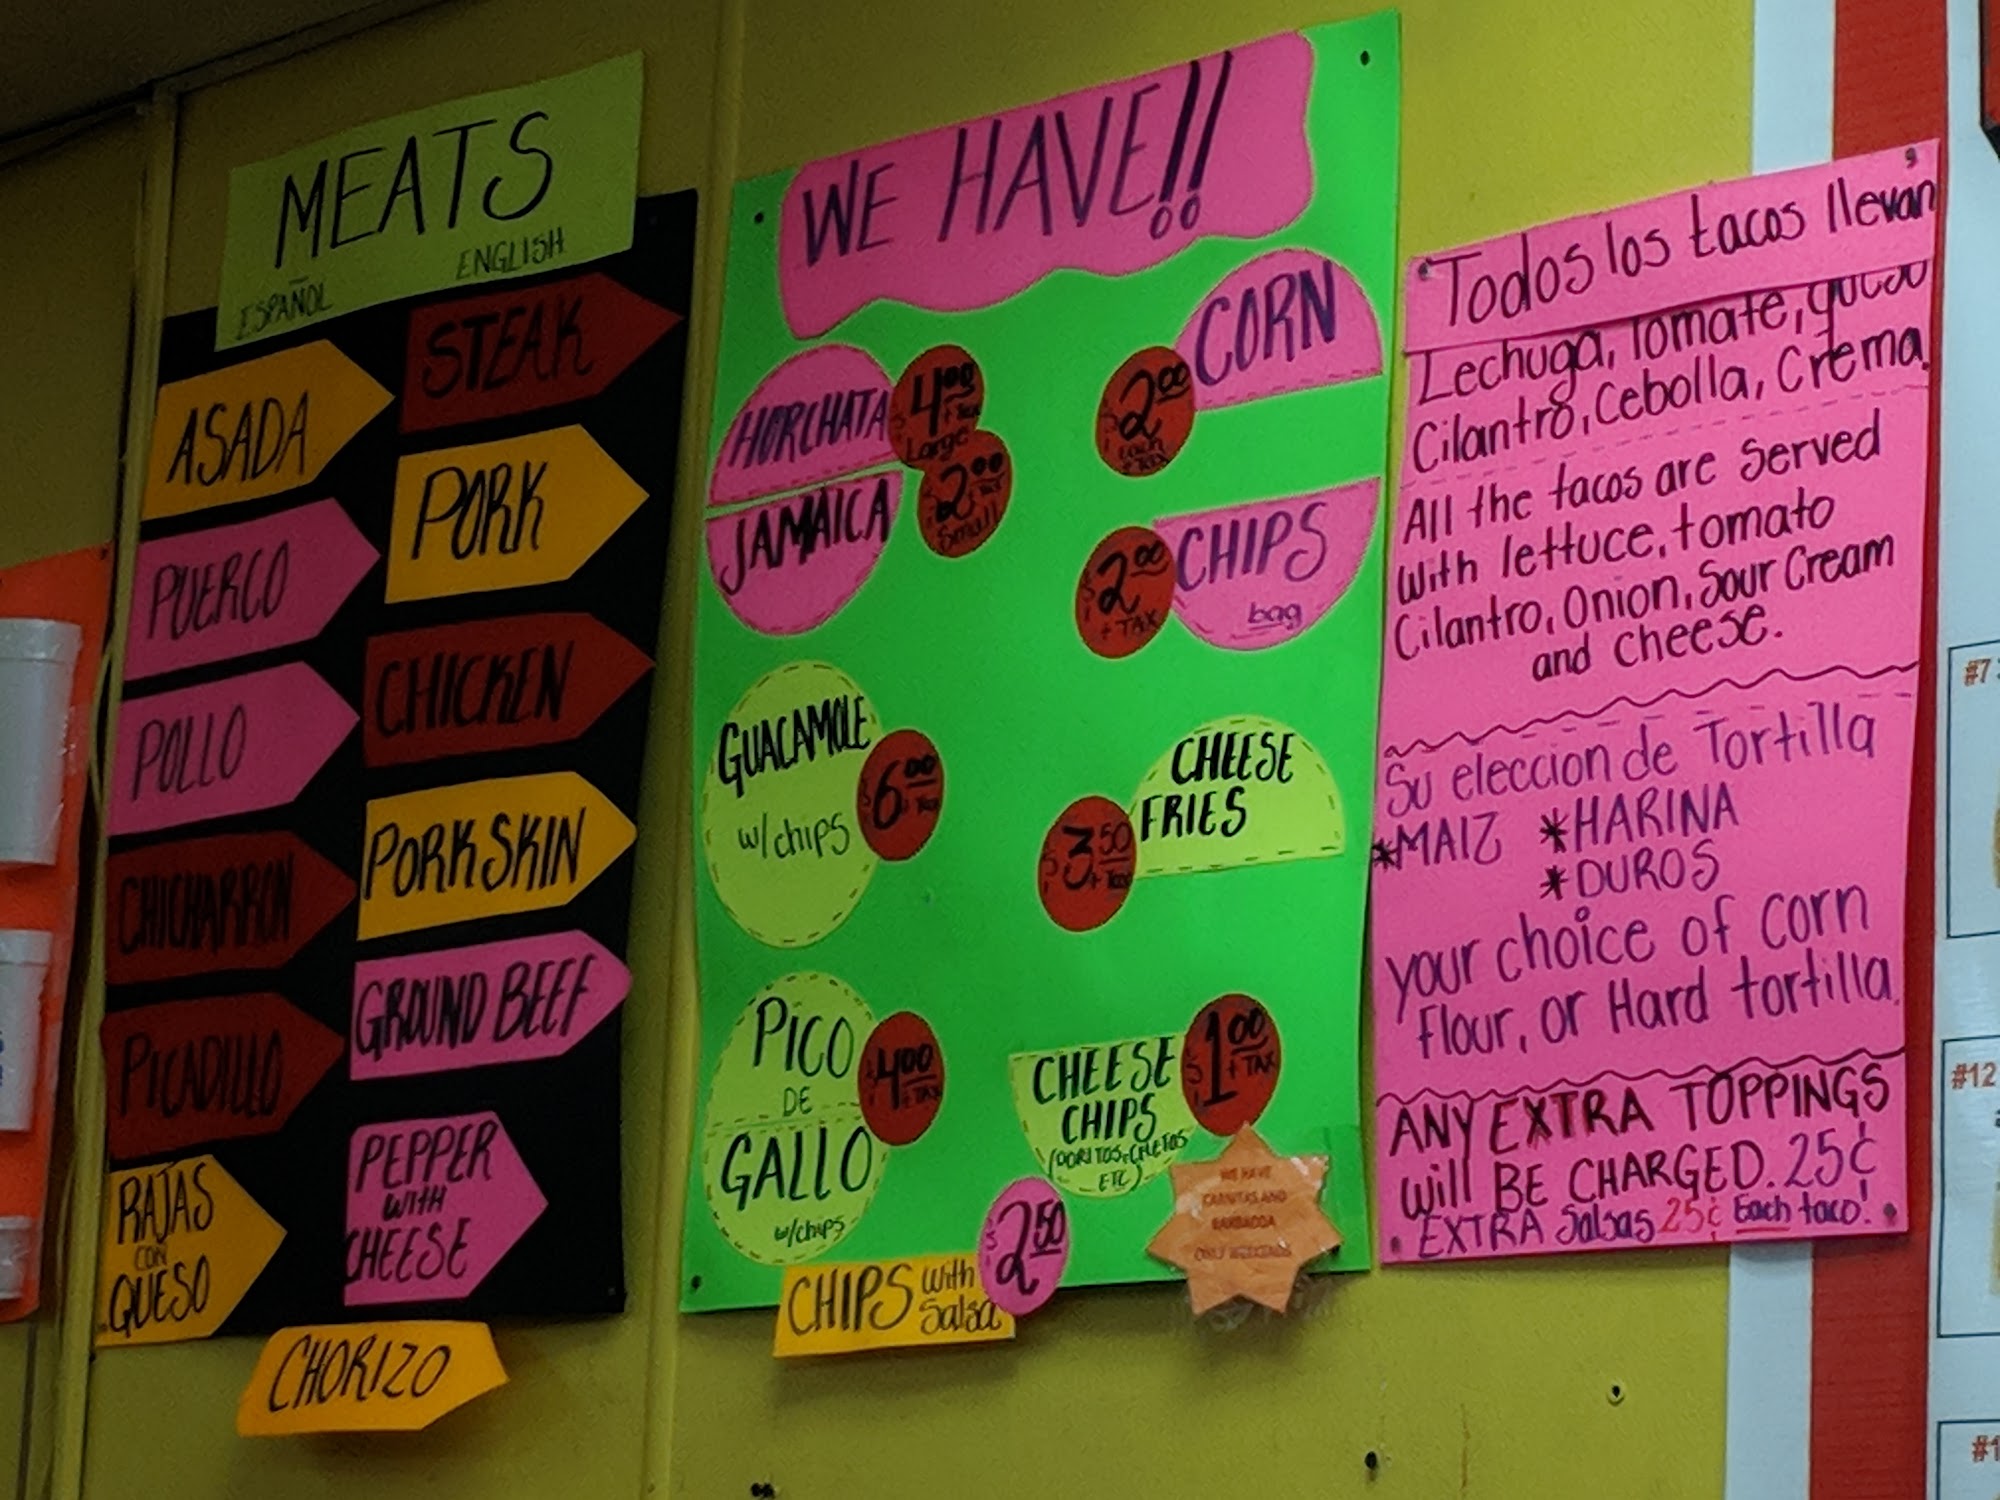 MEATS
ESPAÑOL
ENGLISH
ASADA
STEAK
PUERCO
PORK
POLLO
CHICKEN
CHICHARRON
PORK SKIN
PICADILLO
GROUND BEEF
RAJAS
CON
QUESO
PEPPER
WITH
CHEESE
CHORIZO
WE HAVE!!
HORCHATA
JAMAICA
$4.00
+ Tax
Large
$2.00
+ Tax
Small
CORN
$2.00
each
+ Tax
CHIPS
bag
$2.00
+ TAX
GUACAMOLE
w/chips
$6.00
+ Tax
CHEESE
FRIES
$3.50
+ Tax
PICO
DE
GALLO
w/chips
$4.00
+ TAX
CHEESE
CHIPS
(DORITOS, CHETOS
ETC)
$1.00
+ TAX
CHIPS with
Salsa
$2.50
WE HAVE
CARNITAS AND
BARBACOA
ONLY WEEKENDS
Todos los tacos llevan
Lechuga, Tomate, queso
Cilantro, Cebolla, Crema.
All the tacos are served
with lettuce, tomato
Cilantro, Onion, Sour Cream
and cheese.
Su eleccion de Tortilla
*MAIZ *HARINA
*DUROS
your choice of corn
Flour, or Hard tortilla.
ANY EXTRA TOPPINGS
Will BE CHARGED. 25¢
EXTRA Salsas 25¢ Each taco!
#7
#12
#1